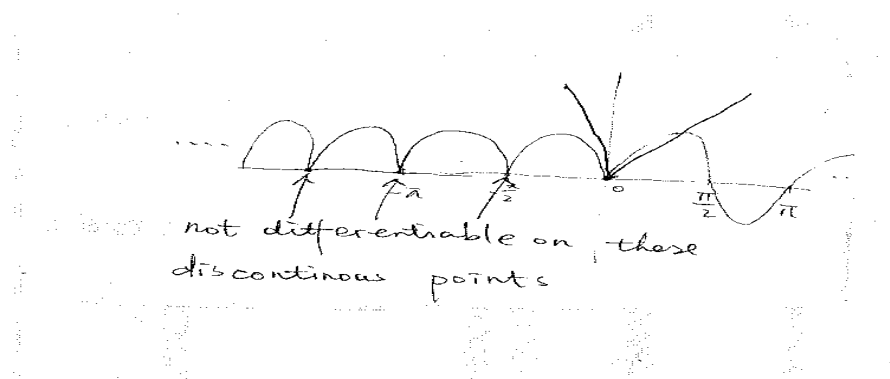 -π -π/2 0 π/2 π
not differentiable on these
discontinous points